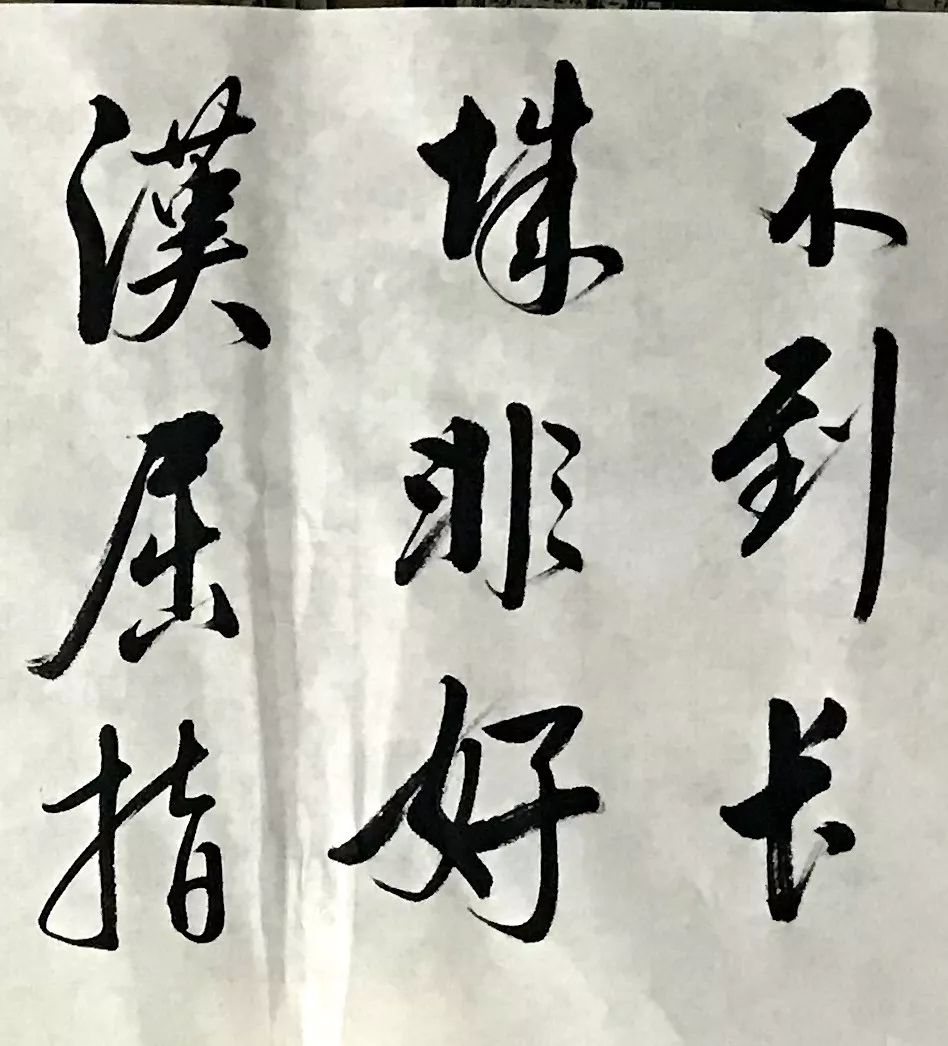 不到长
城非好
漢屈指